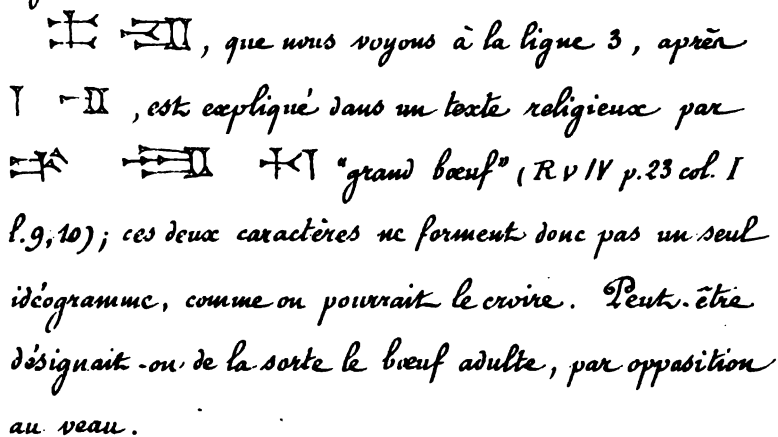 , que nous voyons à la ligne 3, après
, est expliqué dans un texte religieux par
"grand bœuf" (R v IV p.23 col. I
l.9,10); ces deux caractères ne forment donc pas un seul
idéogramme, comme on pourrait le croire. Peut-être
désignait-on de la sorte le bœuf adulte, par opposition
au veau.